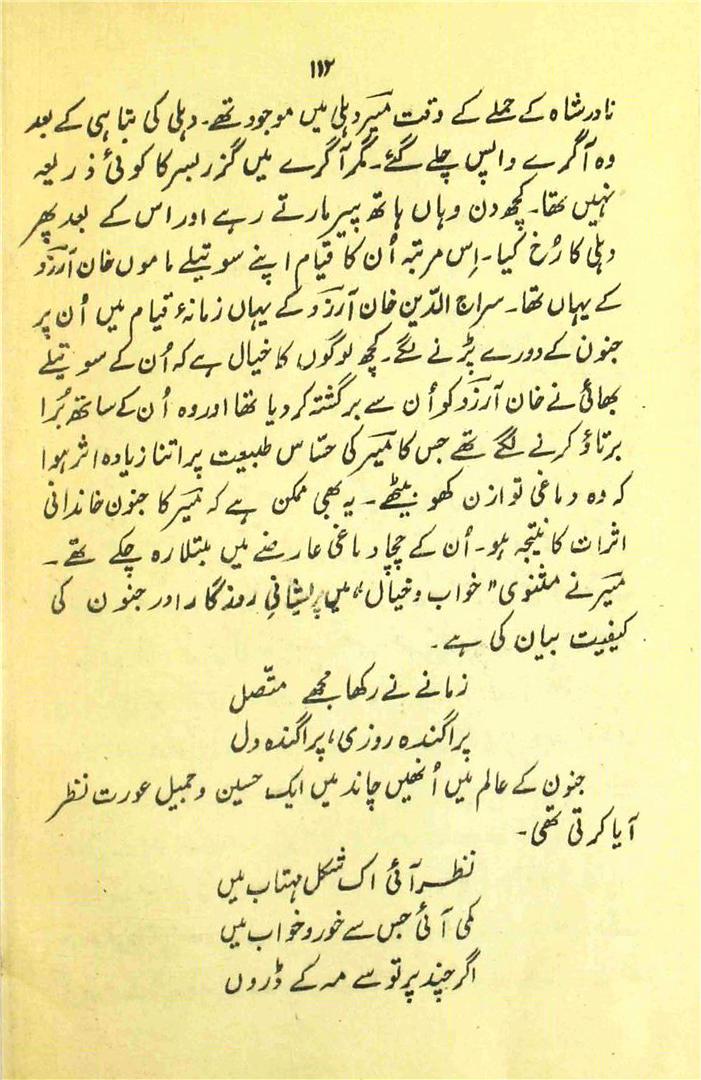 ۱۱۲
نادر شاہ کے حملے کے وقت میرؔ دہلی میں موجود تھے۔ دہلی کی تباہی کے بعد
وہ آگرے واپس چلے گئے۔ مگر آگرے میں گزر بسر کا کوئی ذریعہ
نہیں تھا۔ کچھ دن وہاں ہاتھ پیر مارتے رہے اور اس کے بعد پھر
دہلی کا رُخ کیا۔ اِس مرتبہ اُن کا قیام اپنے سوتیلے ماموں خان آرزوؔ
کے یہاں تھا۔ سراج الدّین خان آرزوؔ کے یہاں زمانۂ قیام میں اُن پر
جنون کے دورے پڑنے لگے۔ کچھ لوگوں کا خیال ہے کہ اُن کے سوتیلے
بھائی نے خان آرزوؔ کو اُن سے برگشتہ کر دیا تھا اور وہ اُن کے ساتھ بُرا
برتاؤ کرنے لگے تھے جس کا میرؔ کی حسّاس طبیعت پر اتنا زیادہ اثر ہوا
کہ وہ دماغی توازن کھو بیٹھے۔ یہ بھی ممکن ہے کہ میرؔ کا جنون خاندانی
اثرات کا نتیجہ ہو۔ اُن کے چچا دماغی عارضے میں مبتلا رہ چکے تھے۔
میرؔ نے مثنوی "خواب و خیال" میں پریشانیِ روزگار اور جنون کی
کیفیت بیان کی ہے۔
زمانے نے رکھا مجھے متّصل
پراگندہ روزی، پراگندہ دل
جنون کے عالم میں اُنھیں چاند میں ایک حسین و جمیل عورت نظر
آیا کرتی تھی۔
نظر آئی اک شکل مہتاب میں
کمی آئی جس سے خور و خواب میں
اگر چند پرتو سے مہ کے ڈروں